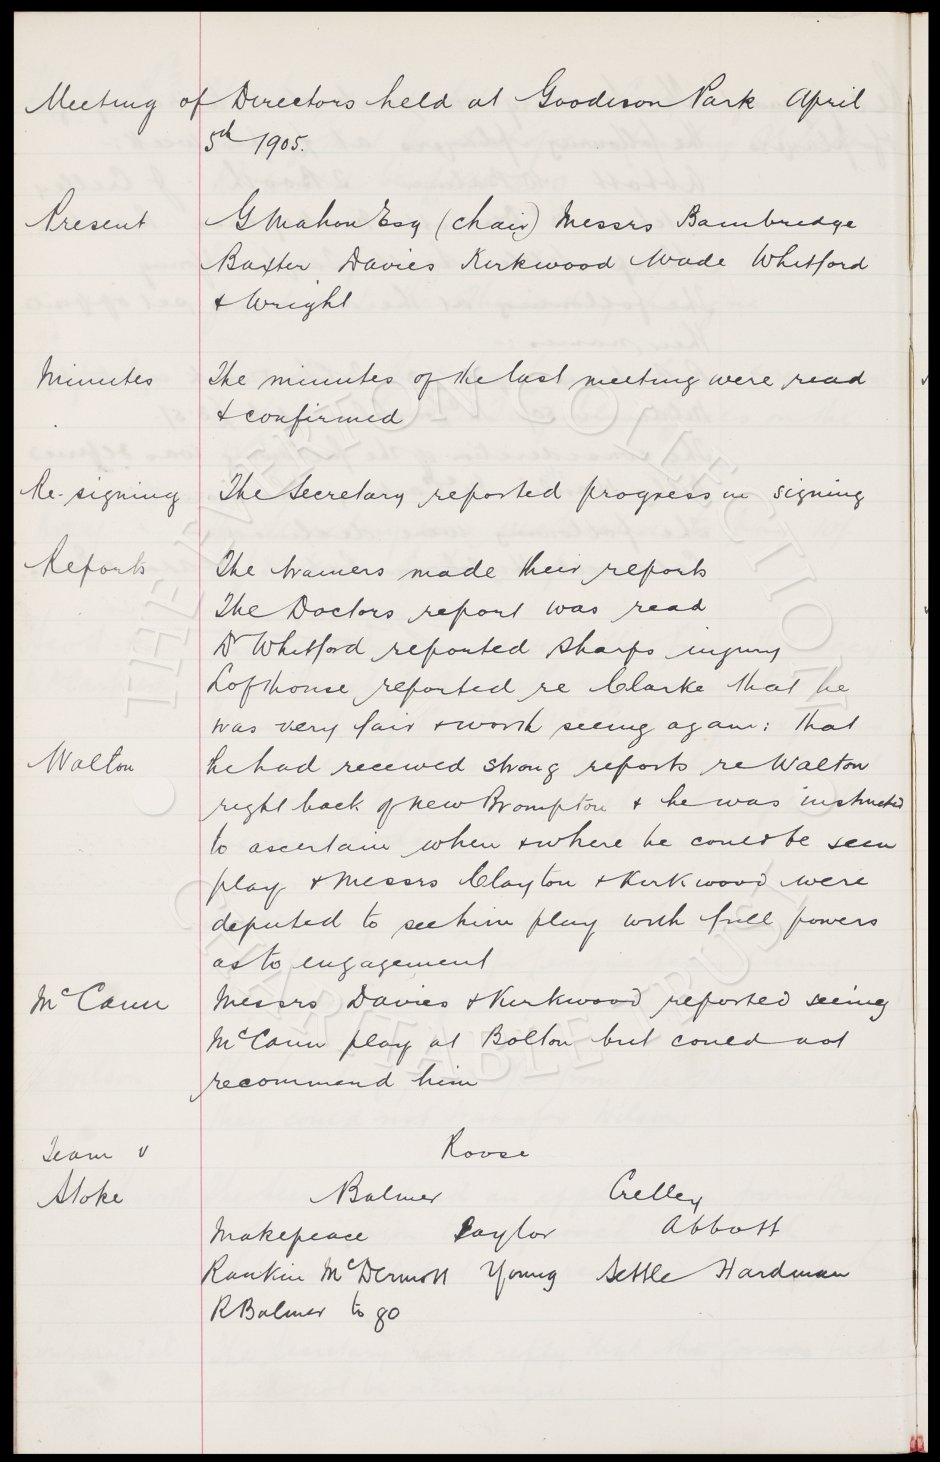 Meeting of Directors held at Goodison Park April
5th 1905.
Present G Mahon Esq (chair) Messrs Bainbridge
Baxter Davies Kirkwood Wade Whitford
& Wright
Minutes The minutes of the last meeting were read
& confirmed
Re-signing The Secretary reported progress in signing
Reports The trainers made their reports
The Doctors report was read
Dr Whitford reported Sharps injury
Lofthouse reported re Clarke that he
was very fair & worth seeing again: that
Walton he had received strong reports re Walton
right back of New Brompton & he was instructed
to ascertain when & where he could be seen
play & Messrs Clayton & Kirkwood were
deputed to see him play with full powers
as to engagement
McCann Messrs Davies & Kirkwood reported seeing
McCann play at Bolton but could not
recommend him
Team v Roose
Stoke Balmer Crelley
Makepeace Taylor Abbott
Rankin McDermott Young Settle Hardman
R Balmer to go
THE EVERTON COLLECTION
CHARITABLE TRUST